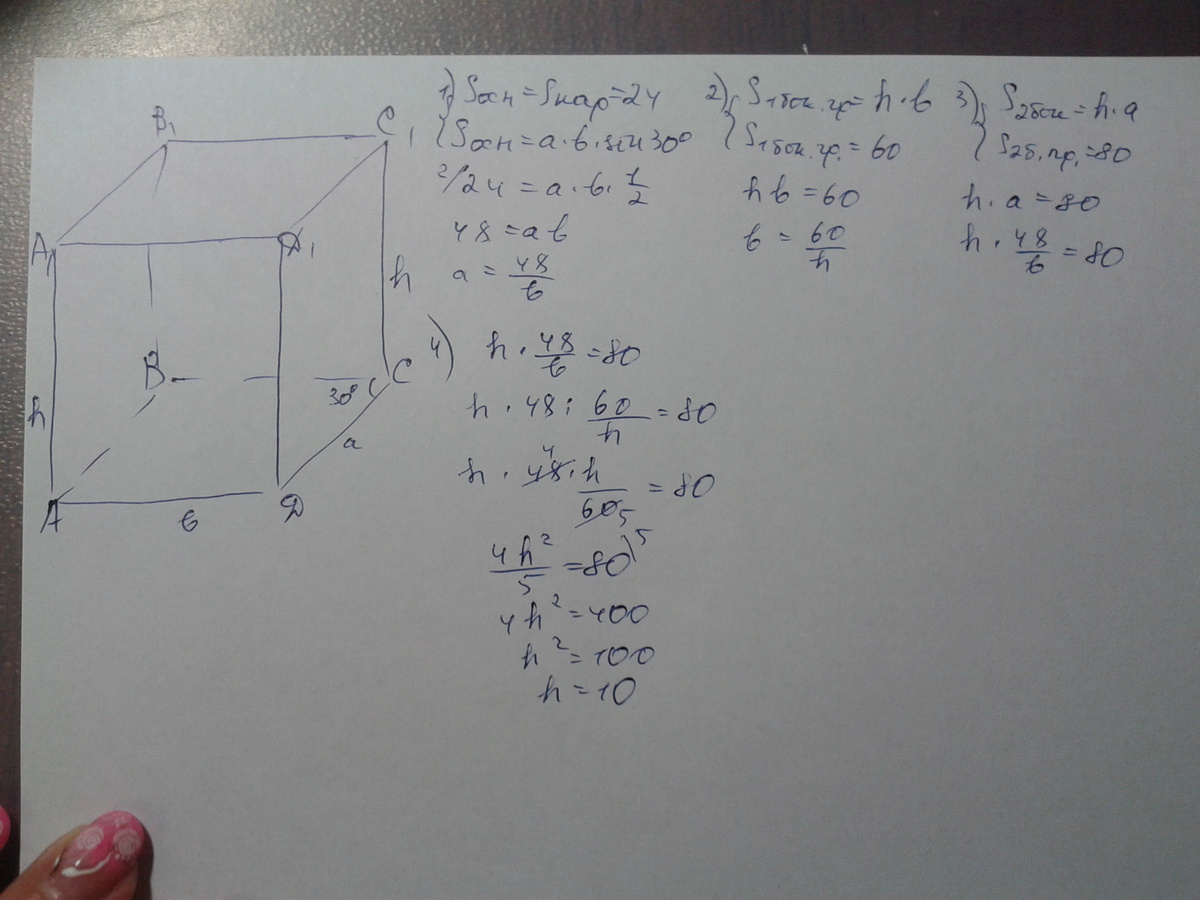 B₁
C₁
A₁
D₁
h
B
30°
C
h
a
A
D
в
1) Sосн = Sпар = 24
Sосн = a·в·sin 30°
2/ 24 = a·в·1/2
48 = aв
a = 48/в
2) S1бок.гр = h·в
S1бок.гр. = 60
hв = 60
в = 60/h
3) S2бок = h·a
S2б.гр. = 80
h·a = 80
h·48/в = 80
4) h·48/в = 80
h·48 : 60/h = 80
h·48·h/60 = 80
4
5
4h²/5 = 80 )5
4h² = 400
h² = 100
h = 10